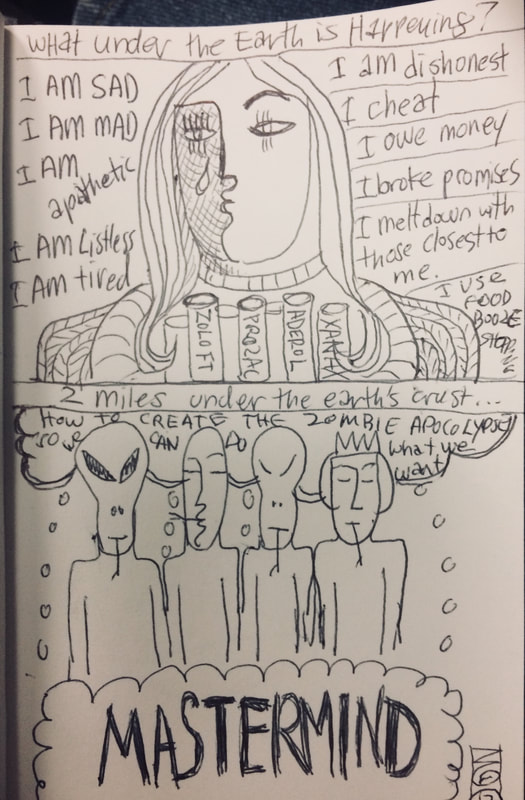 What under the Earth is Happening?
I AM SAD
I AM MAD
I AM
apathetic
I AM Listless
I AM tired
I am dishonest
I cheat
I owe money
I broke promises
I meltdown with
those closest to
me.
I USE
FOOD
BOOZE
ZOLOFT
PROZAC
ADEROL
XANAX
2 miles under the earth's crust...
HOW TO CREATE THE ZOMBIE APOCOLYPSE
SO WE CAN DO what we
want
MASTERMIND